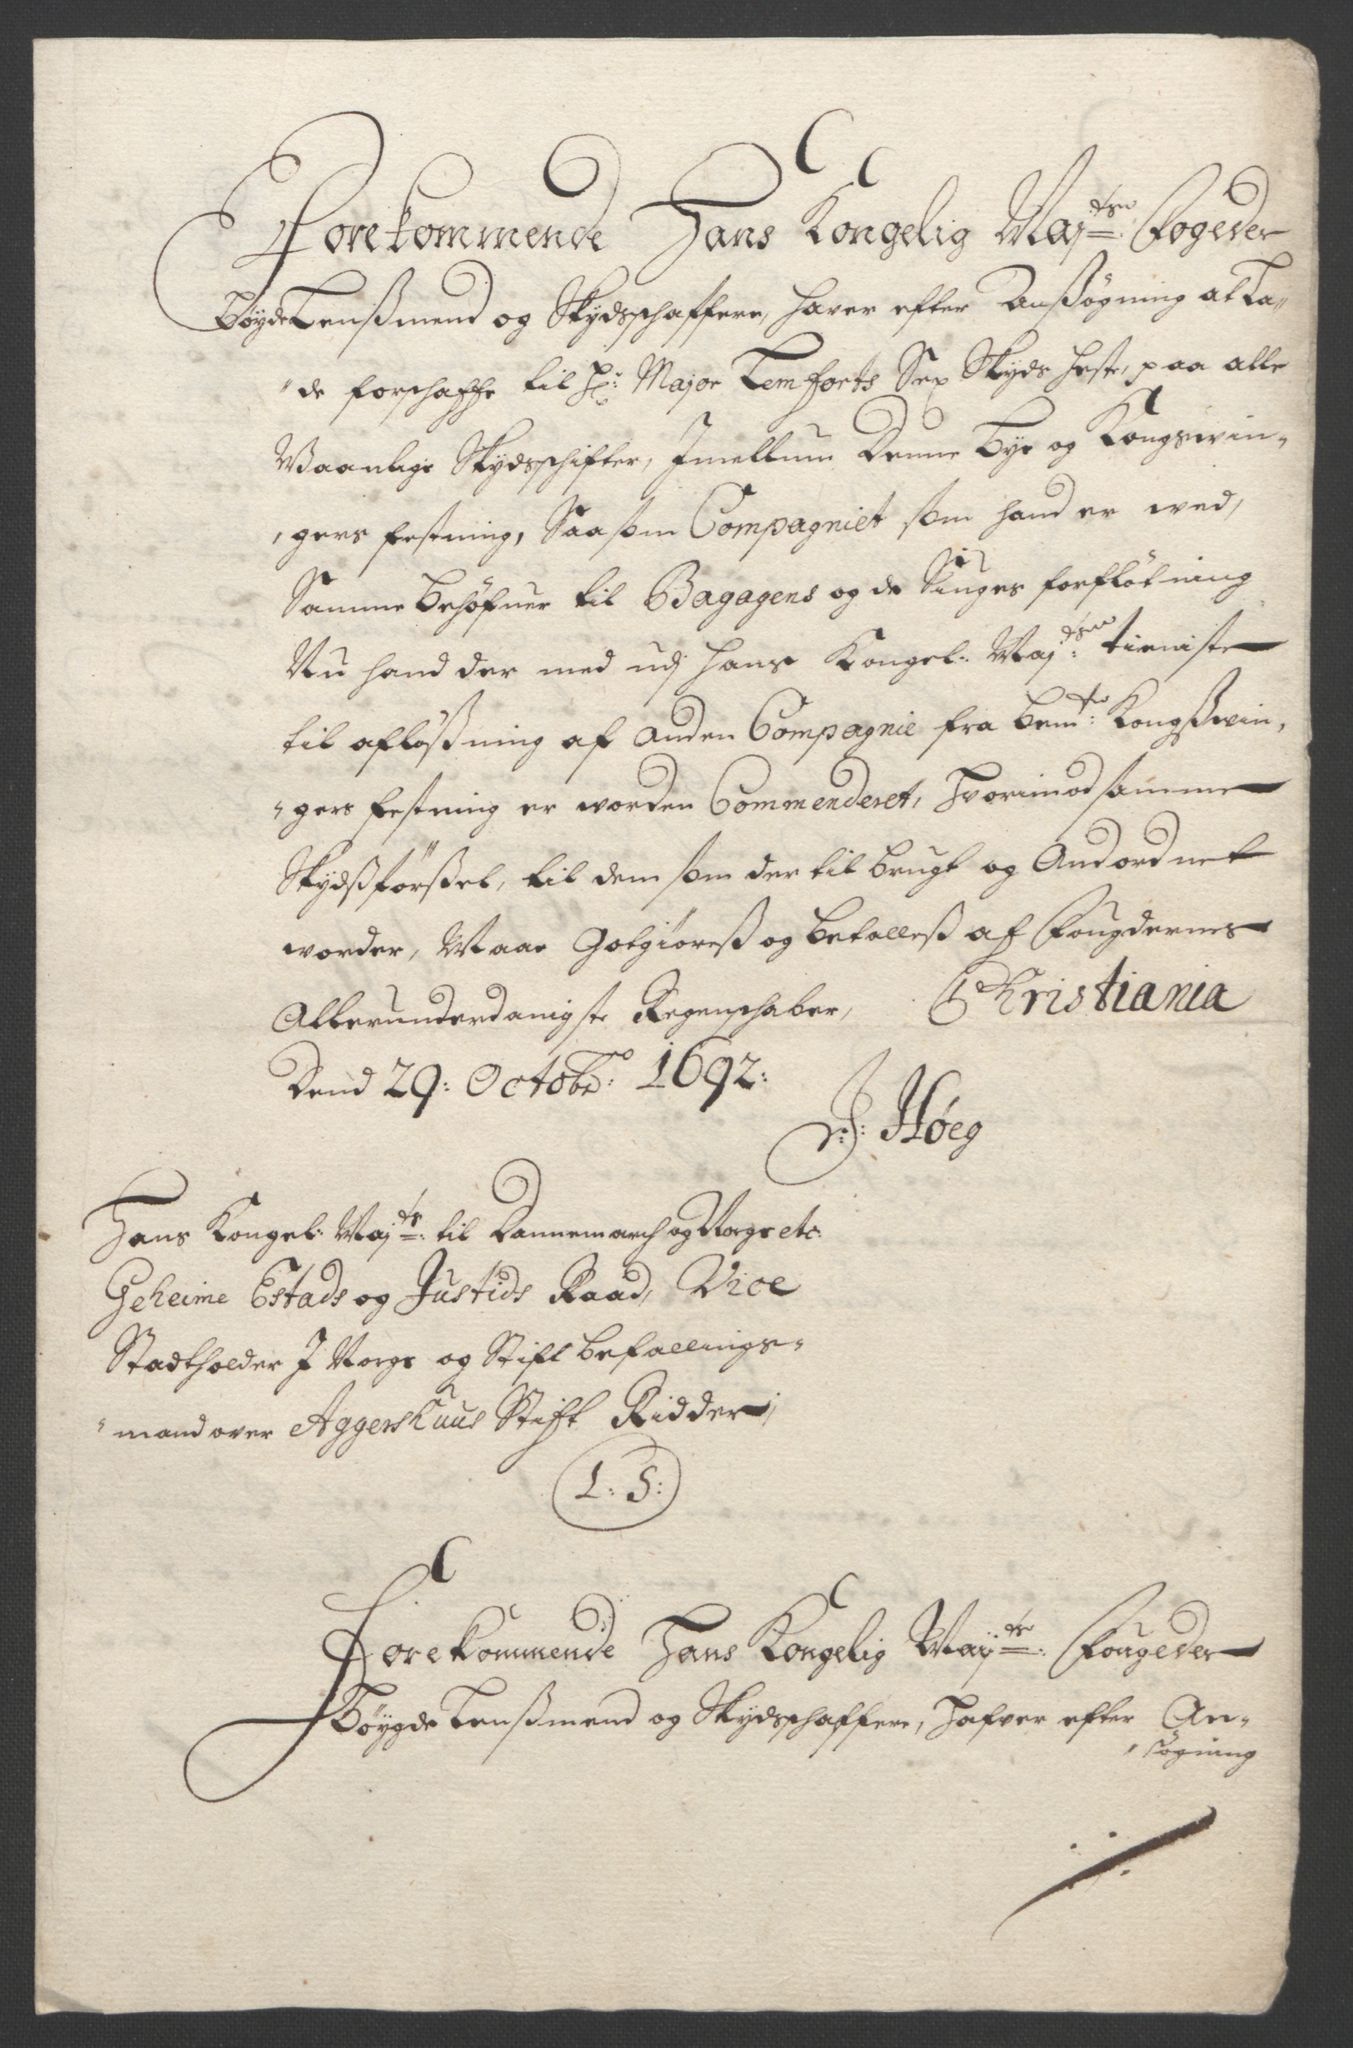 Forekommende Hans Kongelig Maj:ts Fogeder
Bøyde Lensßmend og Skydsschaffere, haver efter Ansßøgning at La-
"de forschaffe til Hr: Major Lemforts Sex Skyds heste, paa alle
Waanlige Skydsschifter, Imellum Denne Bye og Kongswin-
"gers festning, Saasom Compagniet som hand er wed,
Samme behøfuer til Bagagens og de Siuges forfløtning
Nu hand der med udj Hans Kongel: Maj:ts tieniste
til afløsßning af Anden Compagnie fra bem:te Kongsßwin-
"gers festning er worden Commenderet, Hvorimod samme
Skydsßførsßel, til dem som der til brugt og Anordnet
worder, Maae Gotgiøresß og betallesß af Fougdernes
Allerunderdanigste Regenschaber, Christiania
Dend 29: Octobr: 1692:
J: Høeg
Hans Kongel: Maj:ts til Dannemarch og Norge etc:
Geheime Estads og Justids Raad, Vice
Stadtholder J Norge og Stift befallings-
"mand over Aggershuus Stift Ridder,
L: S:
Forekommende Hans Kongelig Maj:ts Fougeder
Bøygde Lensßmend og Skydsschaffere, Hafver efter An-
"søgning